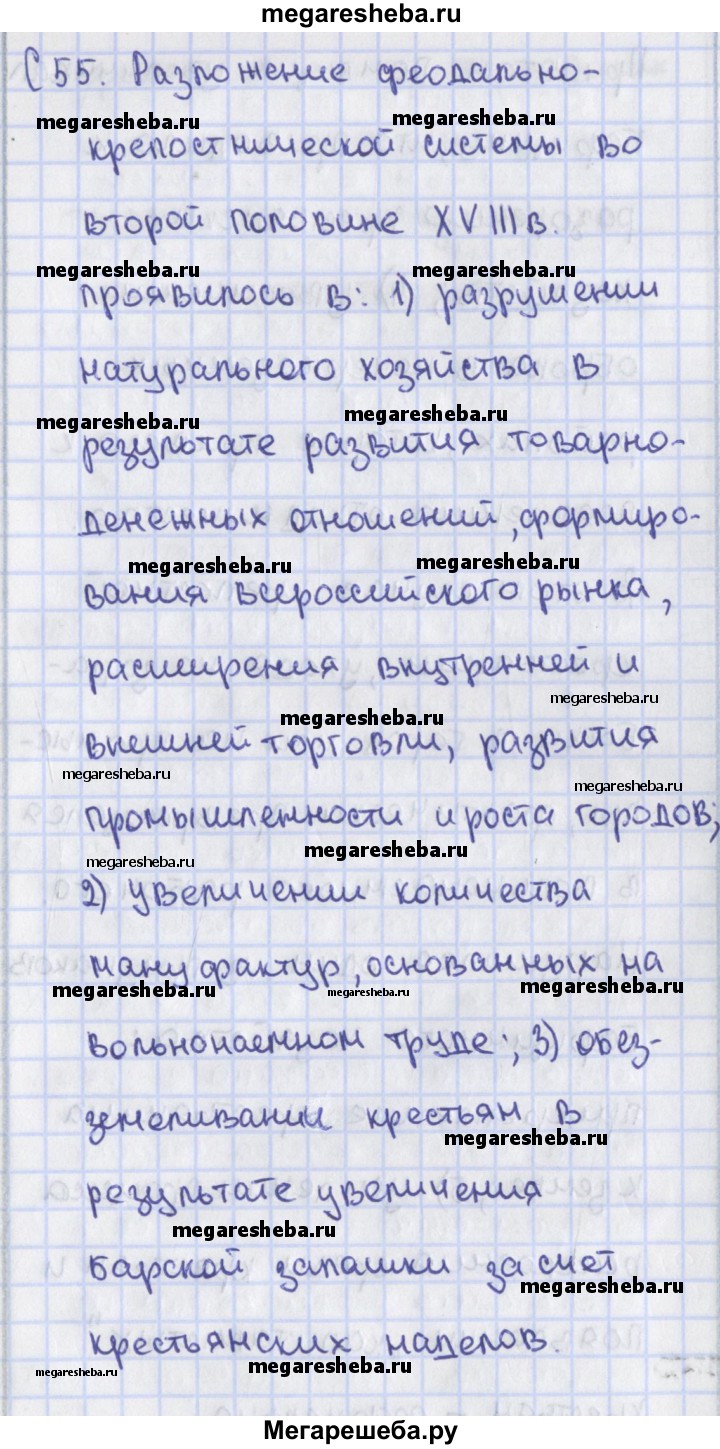 megaresheba.ru
С 55. Разложение феодально-
megaresheba.ru megaresheba.ru
крепостнической системы во
второй половине XVIII в.
megaresheba.ru megaresheba.ru
проявилось в: 1) разрушении
натурального хозяйства в
megaresheba.ru megaresheba.ru
результате развития товарно-
денежных отношений, формиро-
megaresheba.ru megaresheba.ru
вания всероссийского рынка,
расширения внутренней и
megaresheba.ru
megaresheba.ru
внешней торговли, развития
megaresheba.ru
megaresheba.ru
промышленности и роста городов;
megaresheba.ru
megaresheba.ru
2) увеличении количества
мануфактур, основанных на
megaresheba.ru megaresheba.ru megaresheba.ru
вольнонаемном труде; 3) обез-
земеливании крестьян в
megaresheba.ru
результате увеличения
megaresheba.ru
барской запашки за счет
megaresheba.ru
крестьянских наделов.
megaresheba.ru megaresheba.ru
Мегарешеба.ру